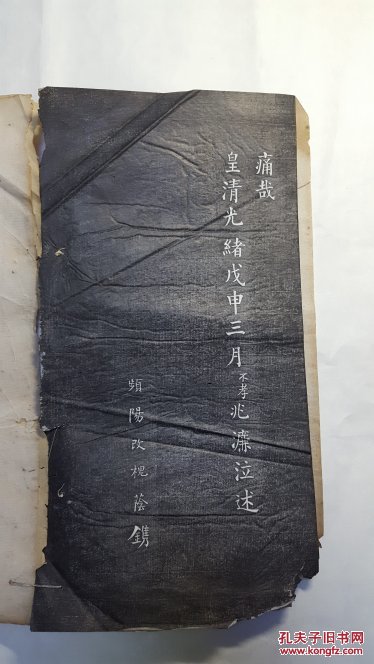 痛哉
皇清光緒戊申三月不孝兆濂泣述
頻陽改槐蔭鐫
孔夫子旧书网
www.kongfz.com